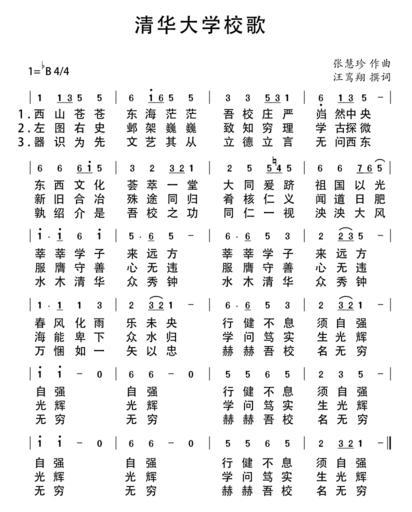 清华大学校歌
张慧珍 作曲
1=♭B 4/4
汪鸾翔 撰词
| 1 1 3 5 5 | 6 i 6 5 5 | 3 3 5 3 1 |
1.西山苍苍 东海茫茫 吾校庄严 岿然中央
2.左图右史 邺架巍巍 致知穷理 学古探微
3.器识为先 文艺其从 立德立言 无问西东
东西文化 荟萃一堂 大同爰跻 祖国以光
新旧合冶 殊途同归 肴核仁义 闻道日肥
孰绍介是 吾校之功 同仁一视 泱泱大风
莘莘学子 来远方 莘莘学子 来远方
服膺守善 心无违 服膺守善 心无违
水木清华 众秀钟 水木清华 众秀钟
春风化雨 乐未央 行健不息 须自强
海能卑下 众水归 学问笃实 生光辉
万悃如一 矢以忠 赫赫吾校 名无穷
| i i - 0 | 6 6 - 0 | 5 5 6 5 |
自强 自强 行健不息 须自强
光辉 光辉 学问笃实 生光辉
无穷 无穷 赫赫吾校 名无穷
| i i - 0 | 6 6 - 0 | 5 5 6 5 | 2 3 2 1 - ‖
自强 自强 行健不息 须自强
光辉 光辉 学问笃实 生光辉
无穷 无穷 赫赫吾校 名无穷